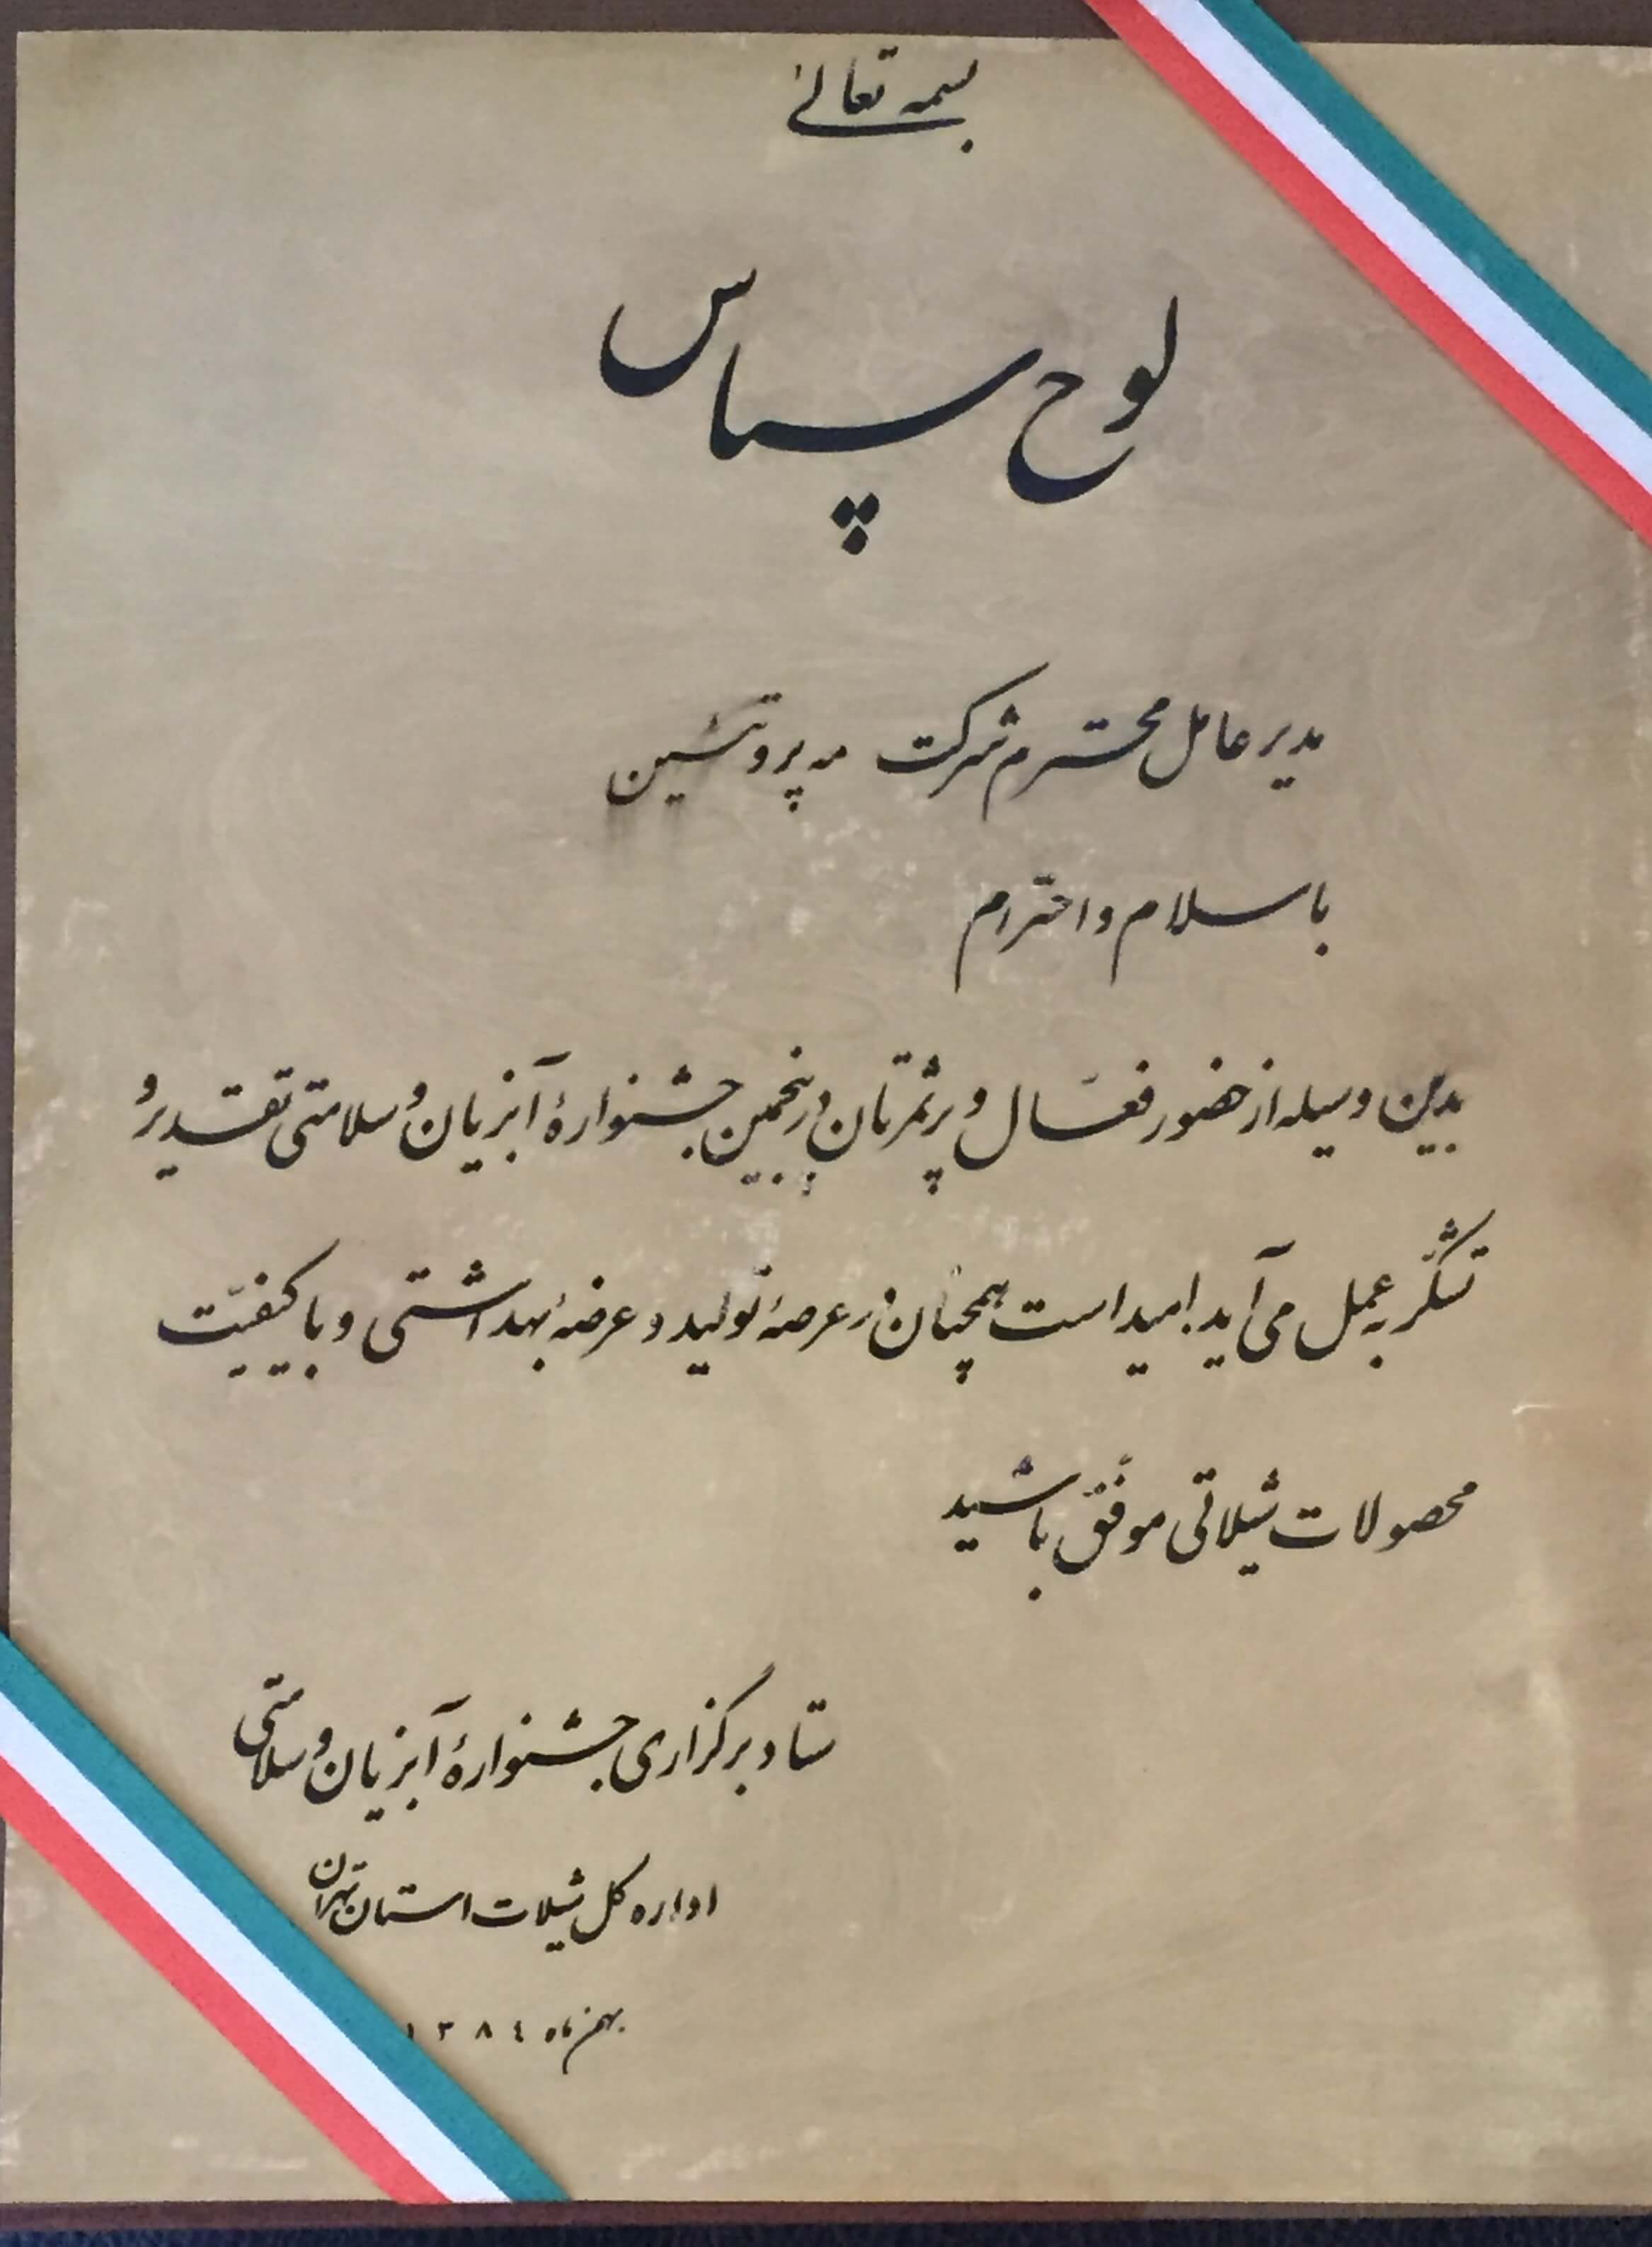 بسمه تعالیٰ
لوح سپاس
مدیر عامل محترم شرکت مه پروتئین
با سلام و احترام
بدین وسیله از حضور فعّال و پرثمرتان در پنجمین جشنوارهٔ آبزیان و سلامتی تقدیر و
تشکّر به عمل می آید. امید است همچنان در عرصهٔ تولید و عرضهٔ بهداشتی و با کیفیّت
محصولات شیلاتی موفّق باشید
ستاد برگزاری جشنوارهٔ آبزیان و سلامتی
اداره کل شیلات استان تهران
بهمن ماه ۱۳۸٤